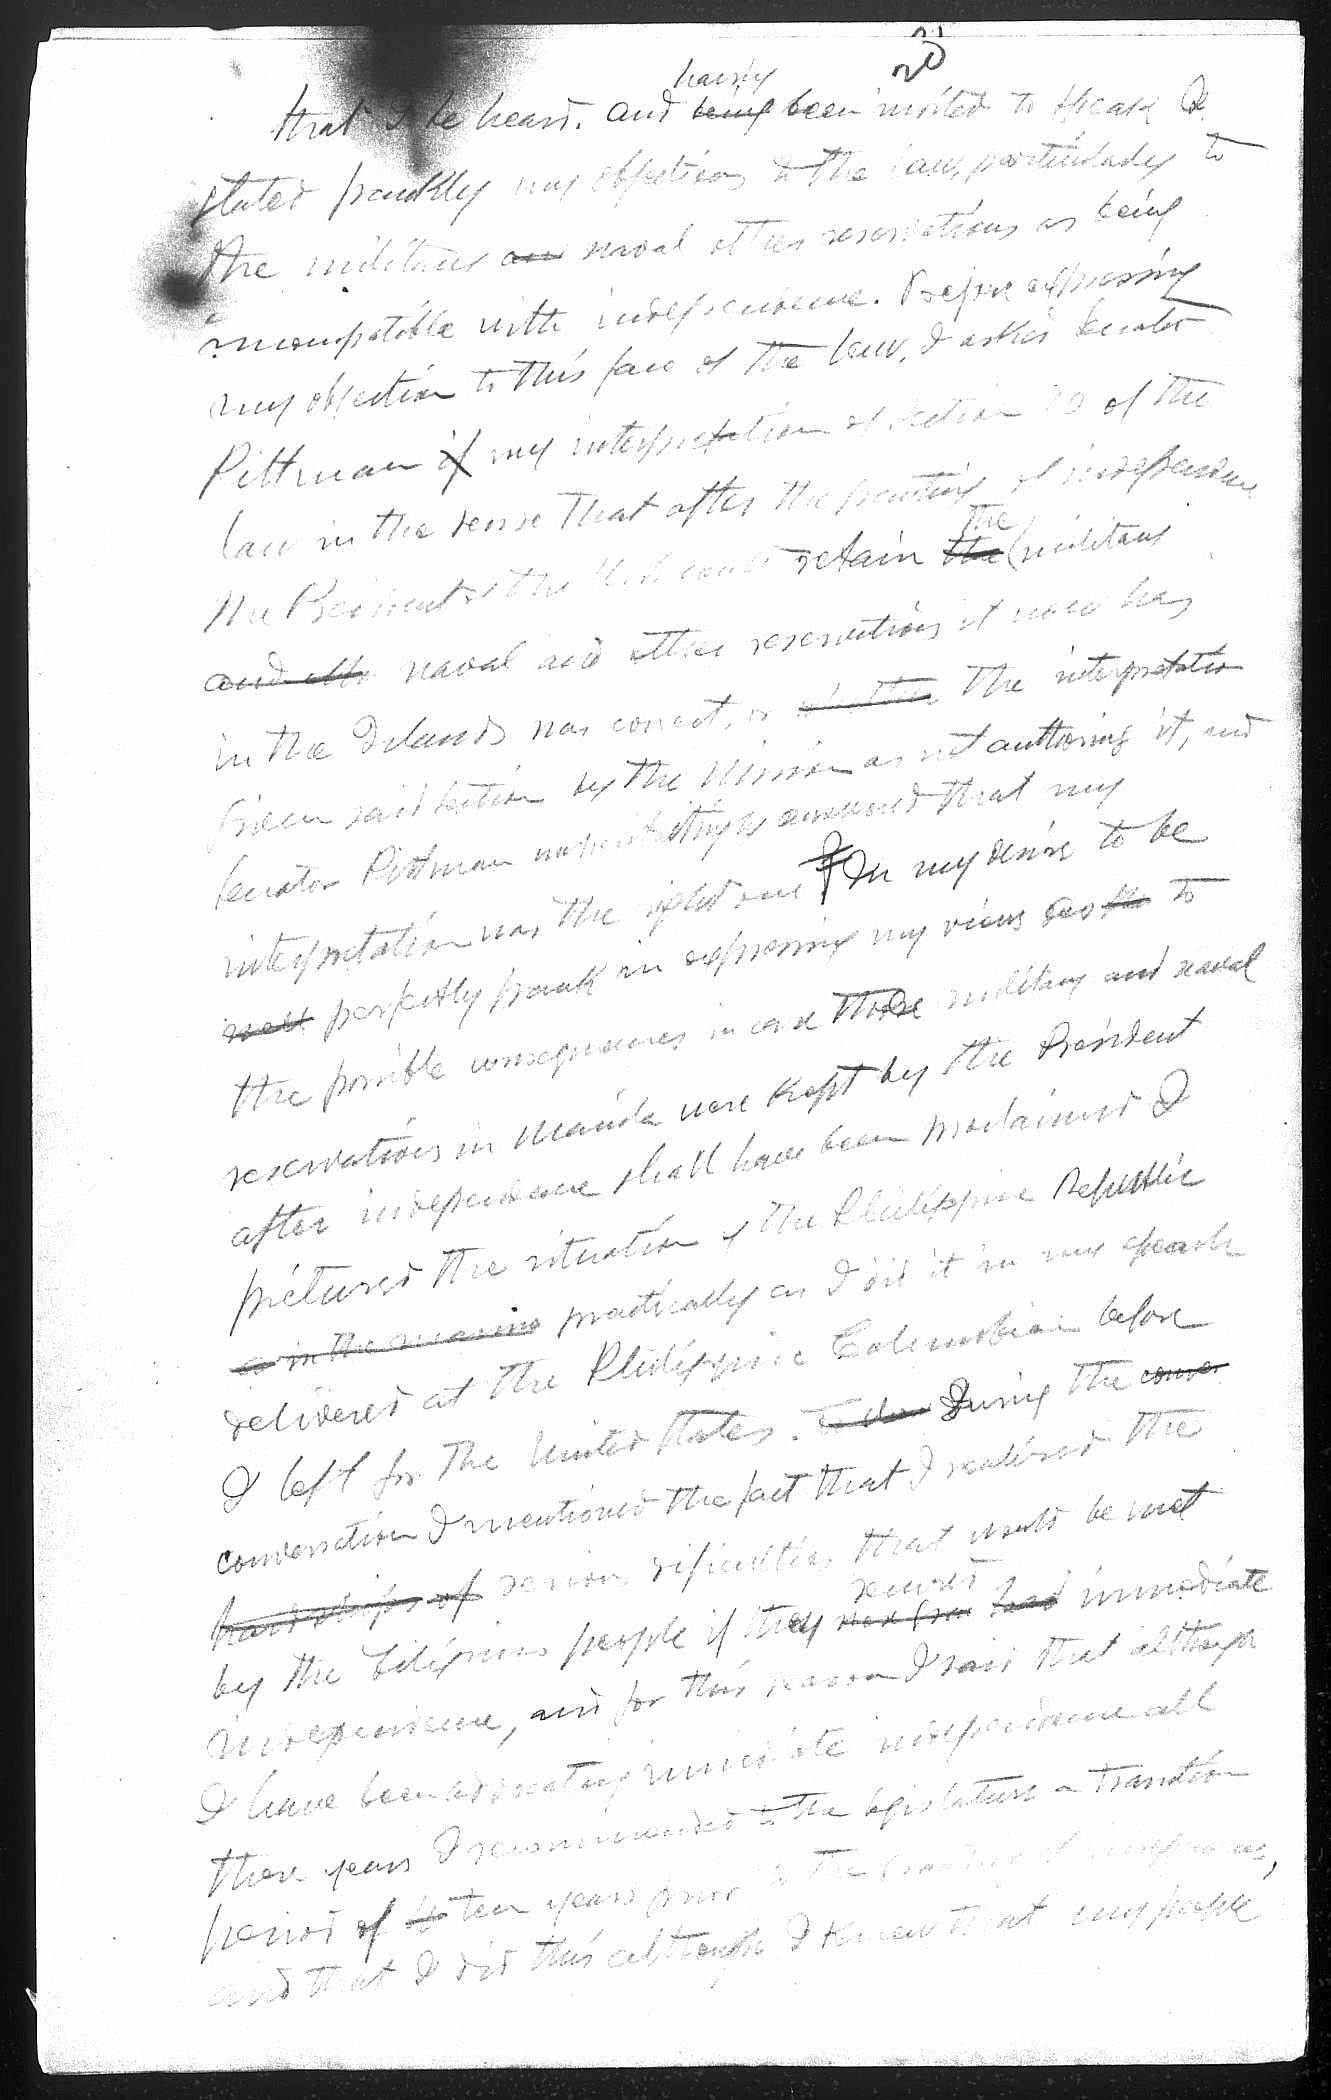 20
having
that I be heard. and being been invited to speak I
stated frankly my objections to the law, particularly to
the military and naval other reservations as being
incompatible with independence. Before expressing
my objection to this face of the law, I asked Senator
Pittman if my interpretation of section 10 of the
law in the sense that after the granting of independence
the
the President of the U.S. could retain the military
and other naval and other reservations it now has
in the Islands was correct, or whether the interpretation
given said section by the Mission as not authorizing it, and
Senator Pittman unhesitatingly answered that my
interpretation was the right one. In my desire to be
well perfectly frank in expressing my views as the to
the possible consequences in case those military and naval
reservations in Manila were kept by the President
after independence shall have been proclaimed I
pictured the situation of the Philippine Republic
as in the meaning practically as I did it in my speech
delivered at the Philippine Columbian before
I left for the United States. During the conver
conversation I mentioned the fact that I realized the
hardships of serious dificulties that would be met
secured
by the Filipino people if they had immediate
independence, and for this reason I said that although
I have been advocating immediate independence all
these years I recommended to the legislature a transition
period of ten years prior to the granting of independence,
and that I did this although I knew that my people